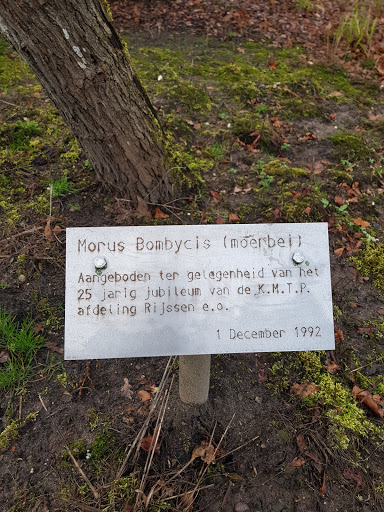 Morus Bombycis (moerbei)
Aangeboden ter gelegenheid van het
25 jarig jubileum van de K.M.T.P.
afdeling Rijssen e.o.
1 December 1992